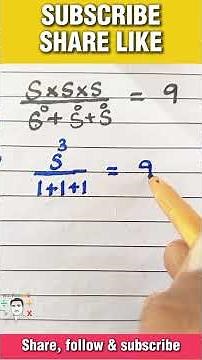 SUBSCRIBE
SHARE LIKE
S×S×S = 9
S⁰ + S⁰ + S⁰
S³ = 9
1+1+1
Share, follow & subscribe